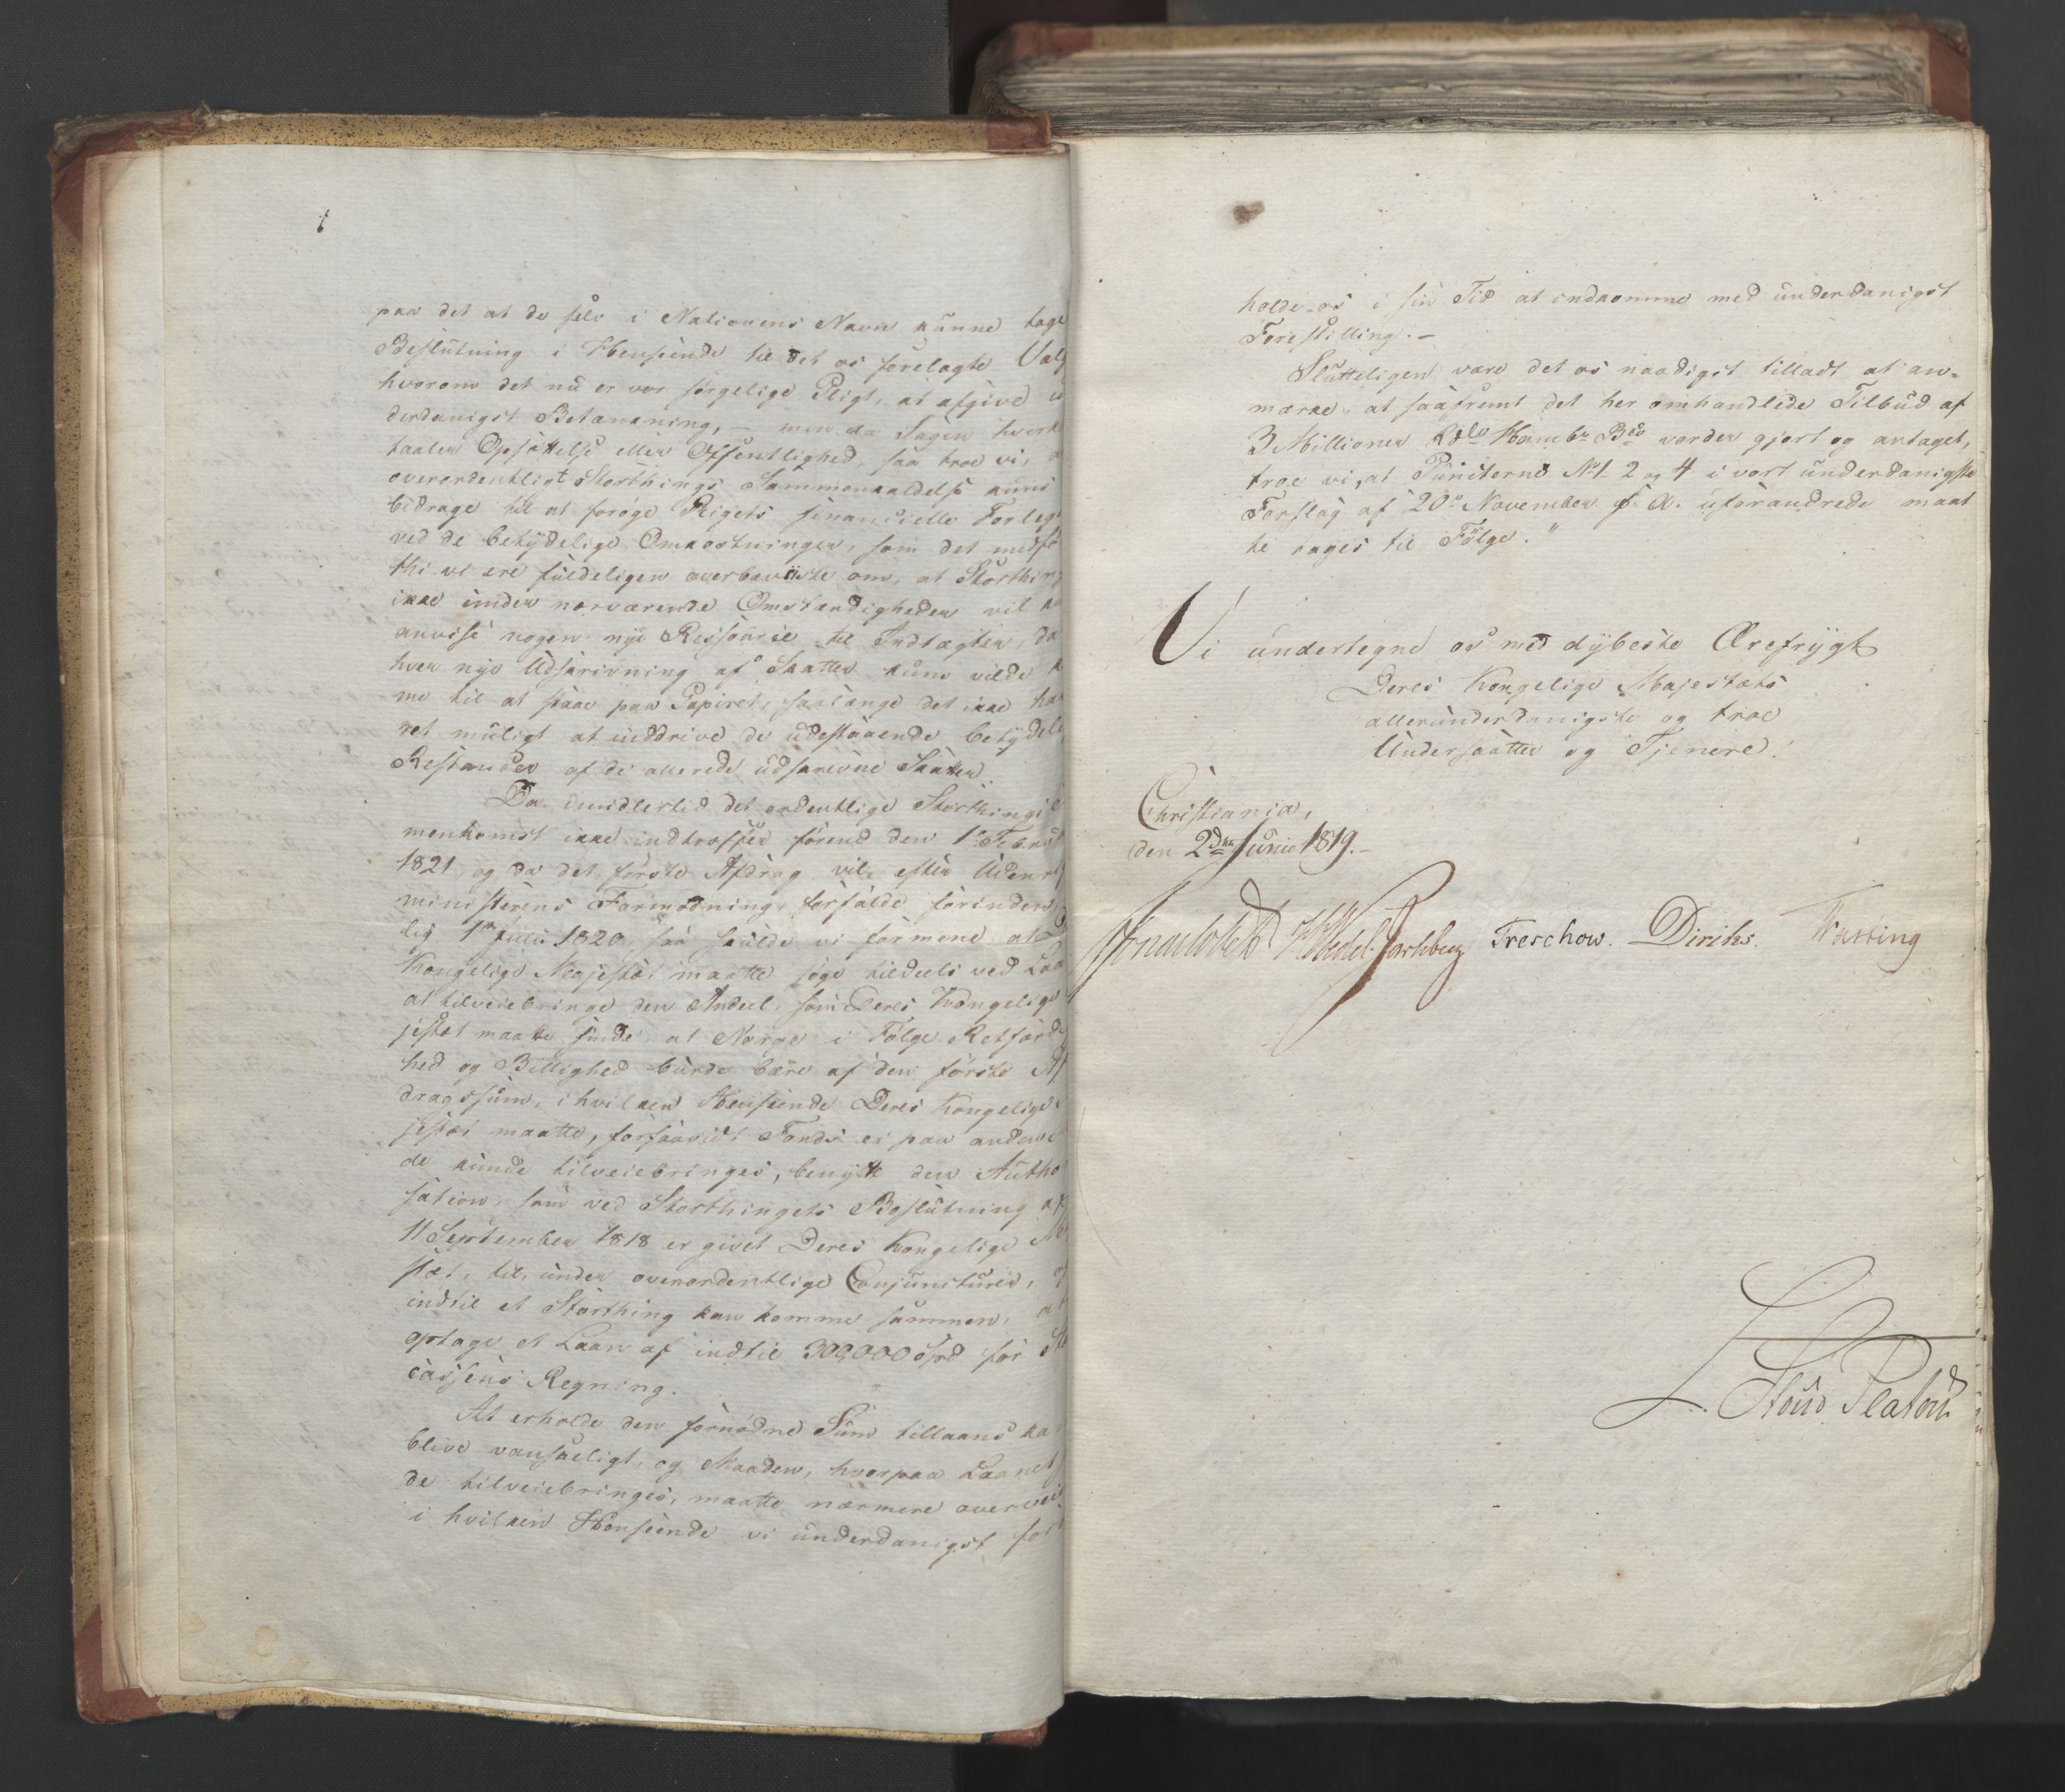 paa det at de selv i Nationens Navn kunne tage
Beslutning i Henseende til det os forelagte Valg
hvorom det nu er vor sørgelige Pligt, at afgive u
derdanigst Betænkning, – men da Sagen hverk
taaler Opsættelse eller Offentlighed, saa troe vi, a
overordentligt Storthings Sammenkaldelse kuns
bidrage til at forøge Rigets financielle Forleg
ved de betydelige Omkostninger, som det medfø
thi vi ere fuldeligen overbeviiste om, at Storthin
ikke under nærværende Omstændigheder vil
anvise nogen nye Ressource til Indtægter, da
hver nye Udskrivning af Skatter kuns vilde k
me til at staae paa Papiret, saalænge det ikke ha
ret muligt at inddrive de udestaaende betydeli
Restancer af de allerede udskrevne Skatter.
Da imidlertid det ordentlige Storthings
menkomst ikke indtræffer førend den 1e Febru
1821, og da det første Afdrag vil, efter Udenri
ministerens Formodning, forfalde forinden
lig 1ste Julii 1820, saa skulde vi formene at
Kongelige Majestæt maatte søge tildeels ved Laa
at tilveiebringe den Andeel, som Deres Kongelige
jestæt maatte finde, at Norge i Følge Retfærdi
hed og Billighed burde bære af den første Af
dragssum, i hvilken Henseende Deres Kongelige
jestæt maatte, forsaavidt Fonds ei paa anden
de kunde tilveiebringes, benytte den Autho
sation, som ved Storthingets Beslutning af
11 September 1818 er givet Deres Kongelige Ma
stæt, til, under overordentlige Conjuncturer, og
indtil et Storthing kan komme sammen, at
optage et Laan af indtil 300,000 Spd for St
cassens Regning.
At erholde den fornødne Sum tillaans ka
blive vanskeligt, og Maaden, hvorpaa Laanet
de tilveiebringes, maatte nærmere overvei
i hvilken Henseende vi underdanigst for
holde os i sin Tid at indkomme med underdanigst
Forestilling. –
Slutteligen være det os naadigst tilladt at an-
mærke, at saafremt det her omhandlede Tilbud af
3 Millioner Rdlr Hambr Bco vorder gjort og antaget,
troe vi, at Puncterne No 1, 2 og 4 i vort underdanigste
Forslag af 20e November f. A. uforandrede maat
te tages til Følge."
Vi undertegne os med dybeste Ærefrygt
Deres Kongelige Majestæts
allerunderdanigste og troe
Undersaatter og Tjenere.
Christiania,
den 2den Junii 1819. –
Wedel-Jarlsberg Treschow. Diriks. Fasting